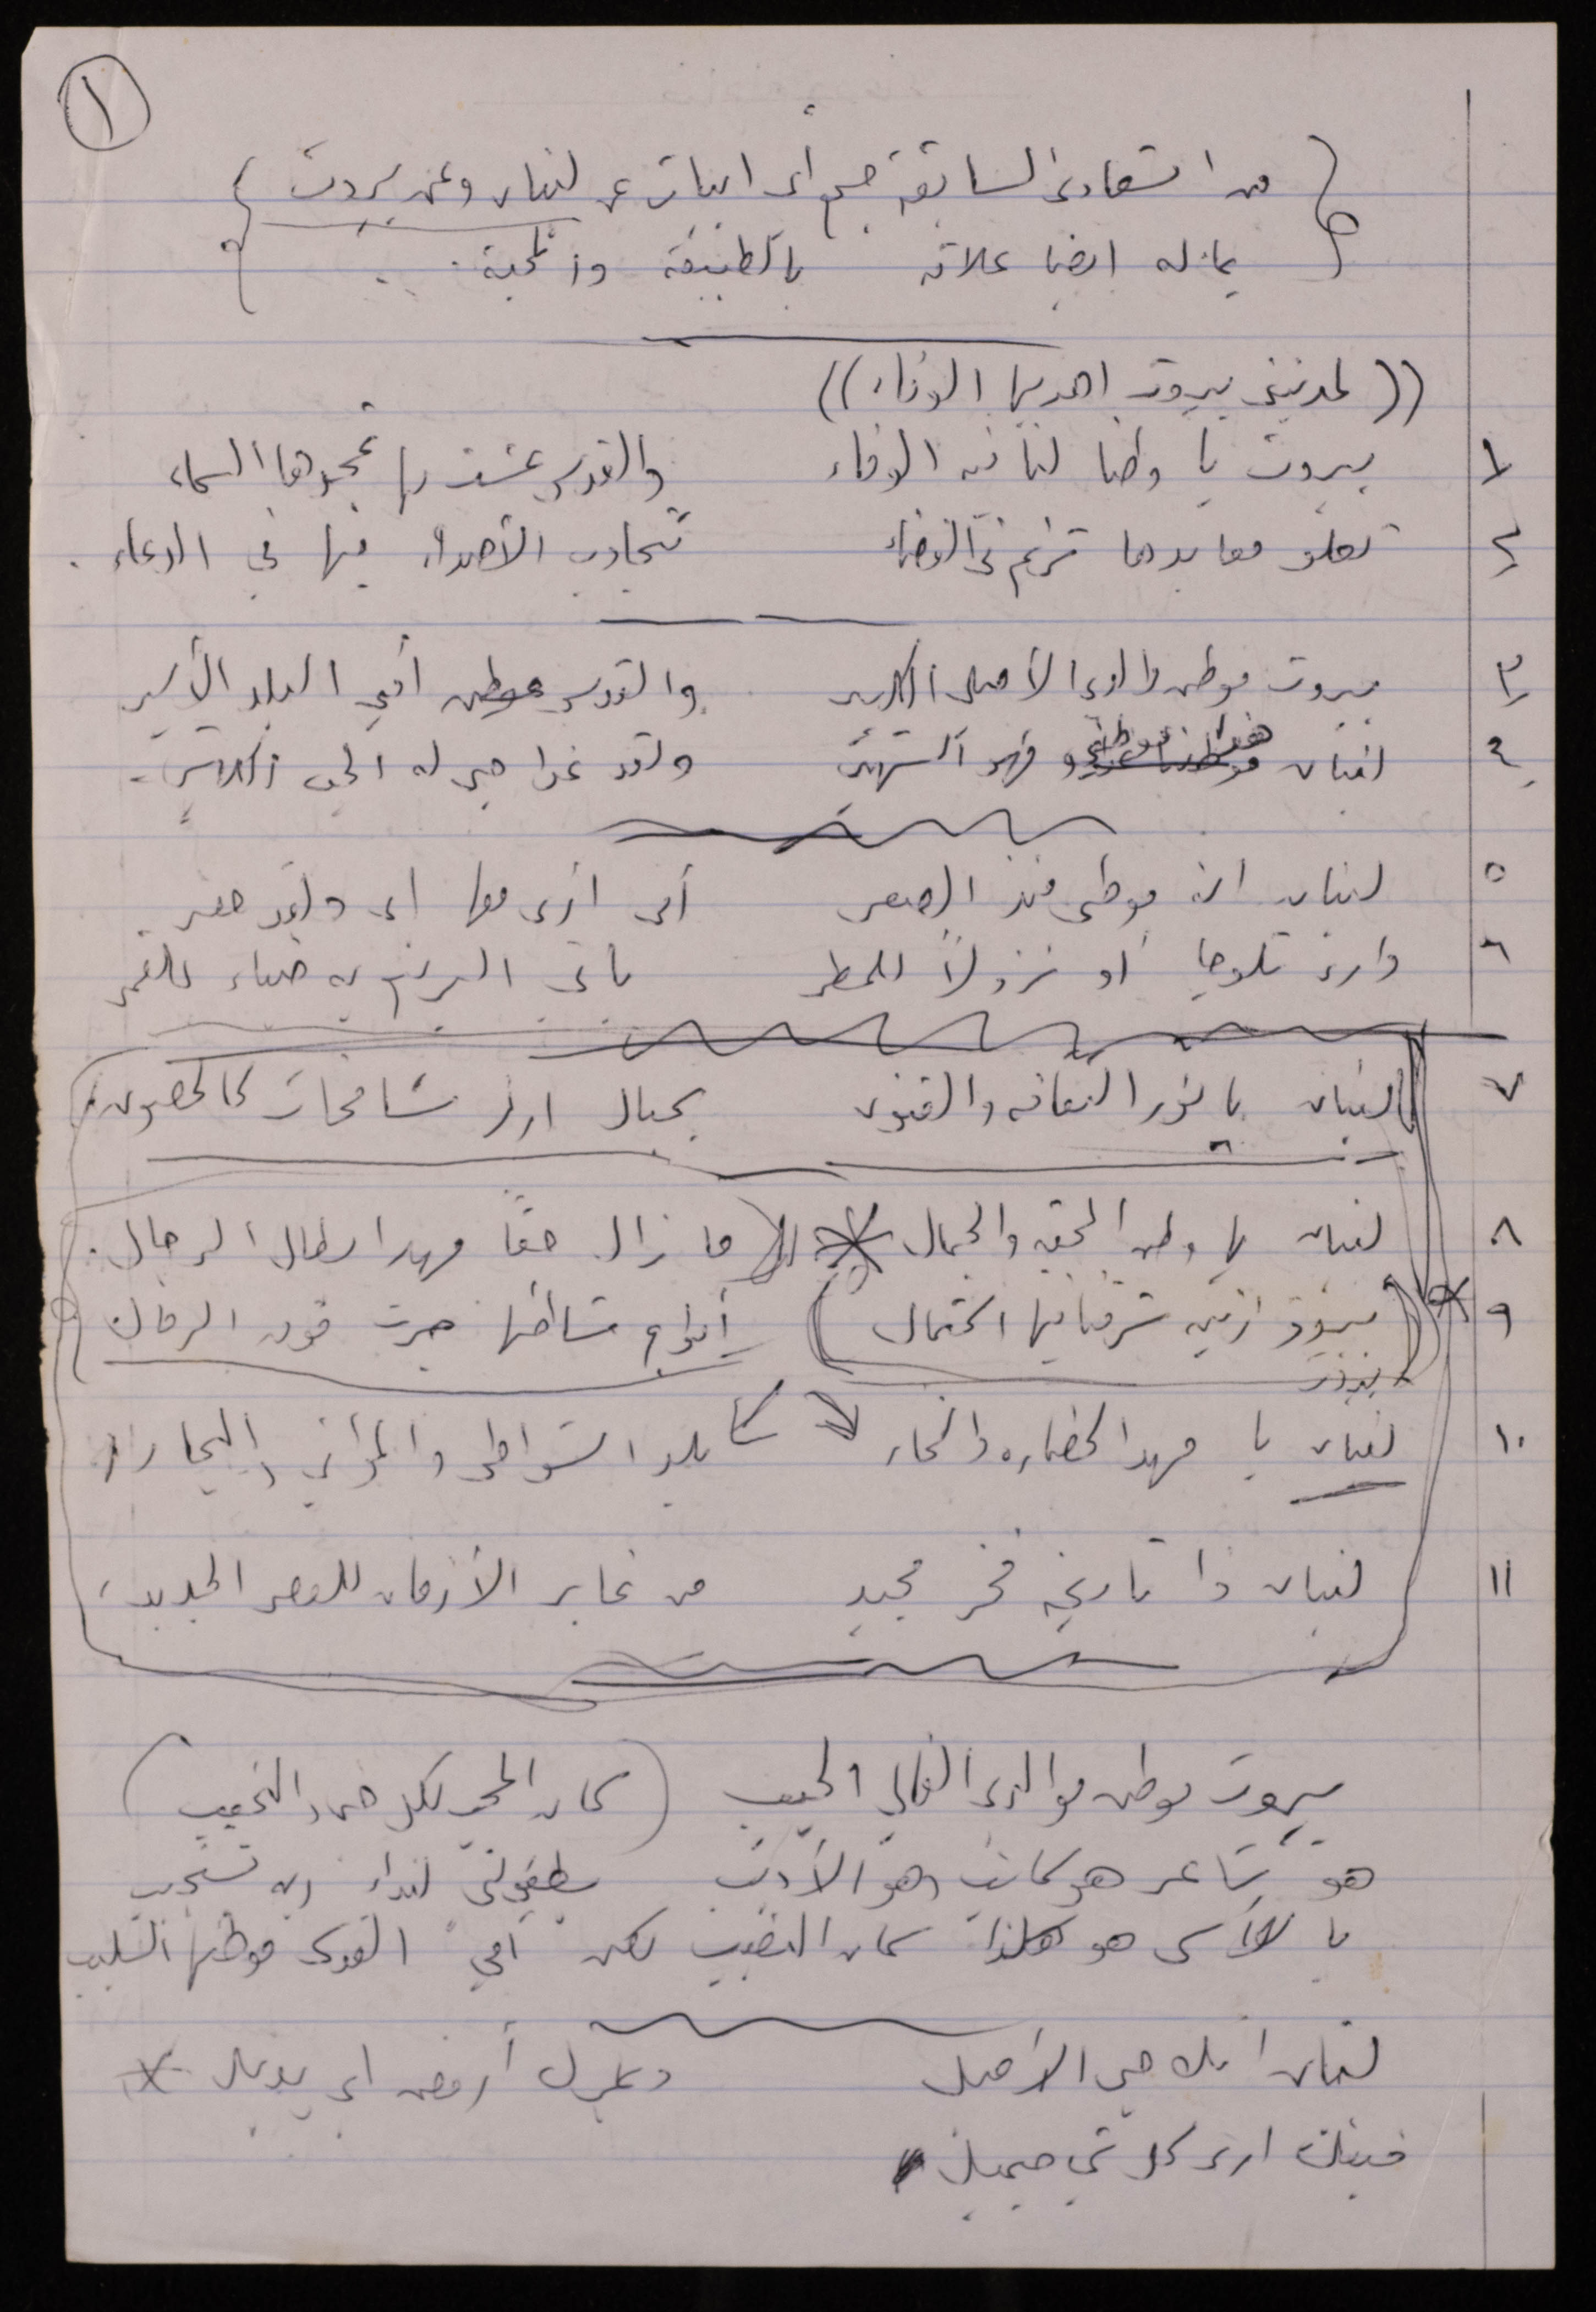 ١
من اشعاري السابقة جميع أي ابيات عن لبنان وعن بيروت
بما له ايضا علاقة بالطبيعة والمحبة..
((لمدينتي بيروت اهديها الوفاء))
١ بيروت يا وطنا لنا فيه الوفاء والقدس عشت بها السماء
٢ تعلو معابدها ترنم في الفضاء تتجاوب الأصداء فيها في الدعاء.
٣ بيروت موطن والدي الأصلي الكبير والقدس موطن أمي البلد الأسير
٤ لبنان فهو الشهير ولقد غدا حبي له الحب الكبير.
٥ لبنان انت موطني منذ الصغر أني ارى فيها
٦ وارى ثلوجا أو نزولاً للمطر يأتي الربيع به ضياء للقمر
٧ لبنان يا نور الثقافة والفنون بجبال ارز شامخات كالحصون.
٨ لبنان يا وطن المحبة والجمال ما زال حقا مهد ابطال الرجال.
٩ بيروت فيها اكتمال أمواج شاطئها جرت فوق الرمال
بيروت
١٠ لبنان يا مهد الحضارة بلد الشواطئ والموانئ والبحار
١١ لبنان ذا تاريخ فخر مجيد من غابر الأزمان للعصر الجديد.
بيروت موطن والدي الغالي الحبيب (كان المحب لكل النجيب)
هو شاعر هو كاتب وهو الأديب بطفولتي لنداء ربه تستجيب
يا للأسى هو هكذا كان النصيب لكن أمي القدس موطنها السليب
لبنان انك حبي الأصيل أرفض اي بديل
فبك ارى كل شي جميل